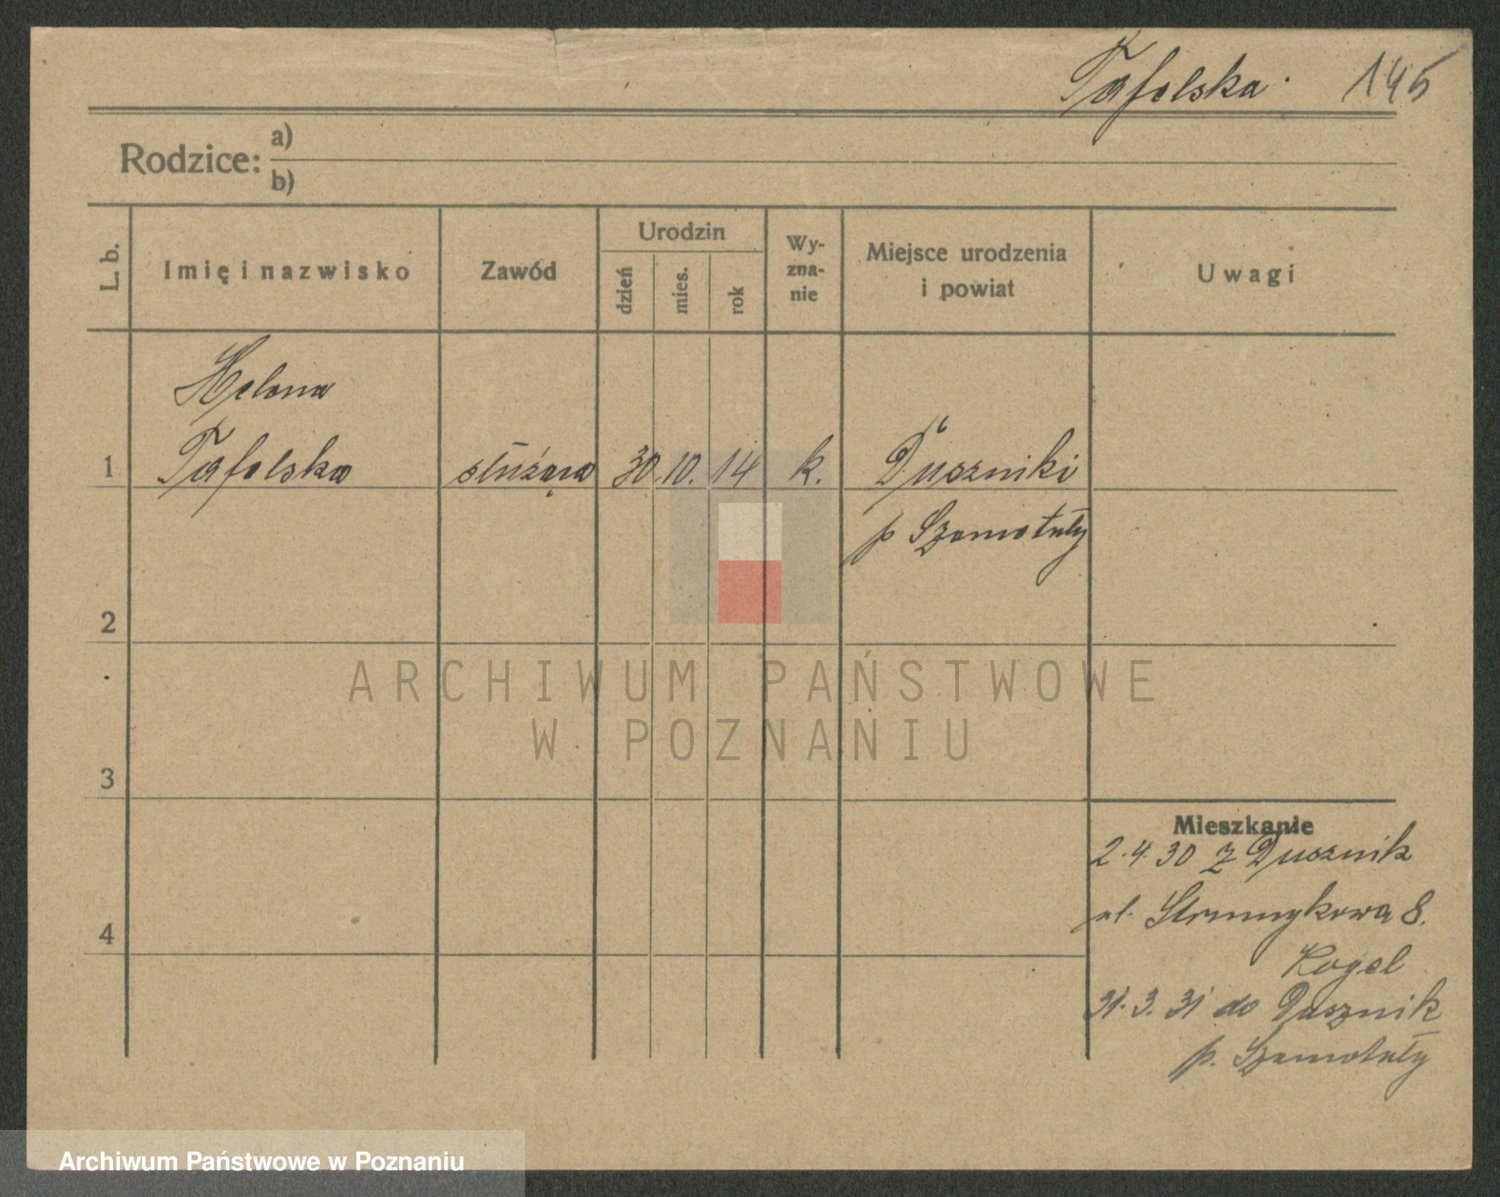 Tafelska 145
Rodzice: a)
b)
L. b.
Imię i nazwisko
Zawód
Urodzin
dzień
mies.
rok
Wy-
zna-
nie
Miejsce urodzenia
i powiat
Uwagi
Helena
1 Tafelska służąca 30 10. 14 k. Duszniki
p Szamotuły
2
3
4
Mieszkanie
2.4.30 z Dusznik
ul. Strumykowa 8.
Kogel
31.3.31 do Dusznik
p. Szamotuły
ARCHIWUM PAŃSTWOWE
W POZNANIU
Archiwum Państwowe w Poznaniu